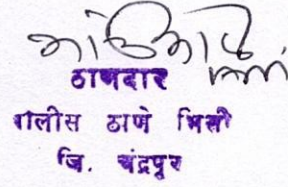 ठाणेदार
पोलीस ठाणे भिसी
जि. चंद्रपूर